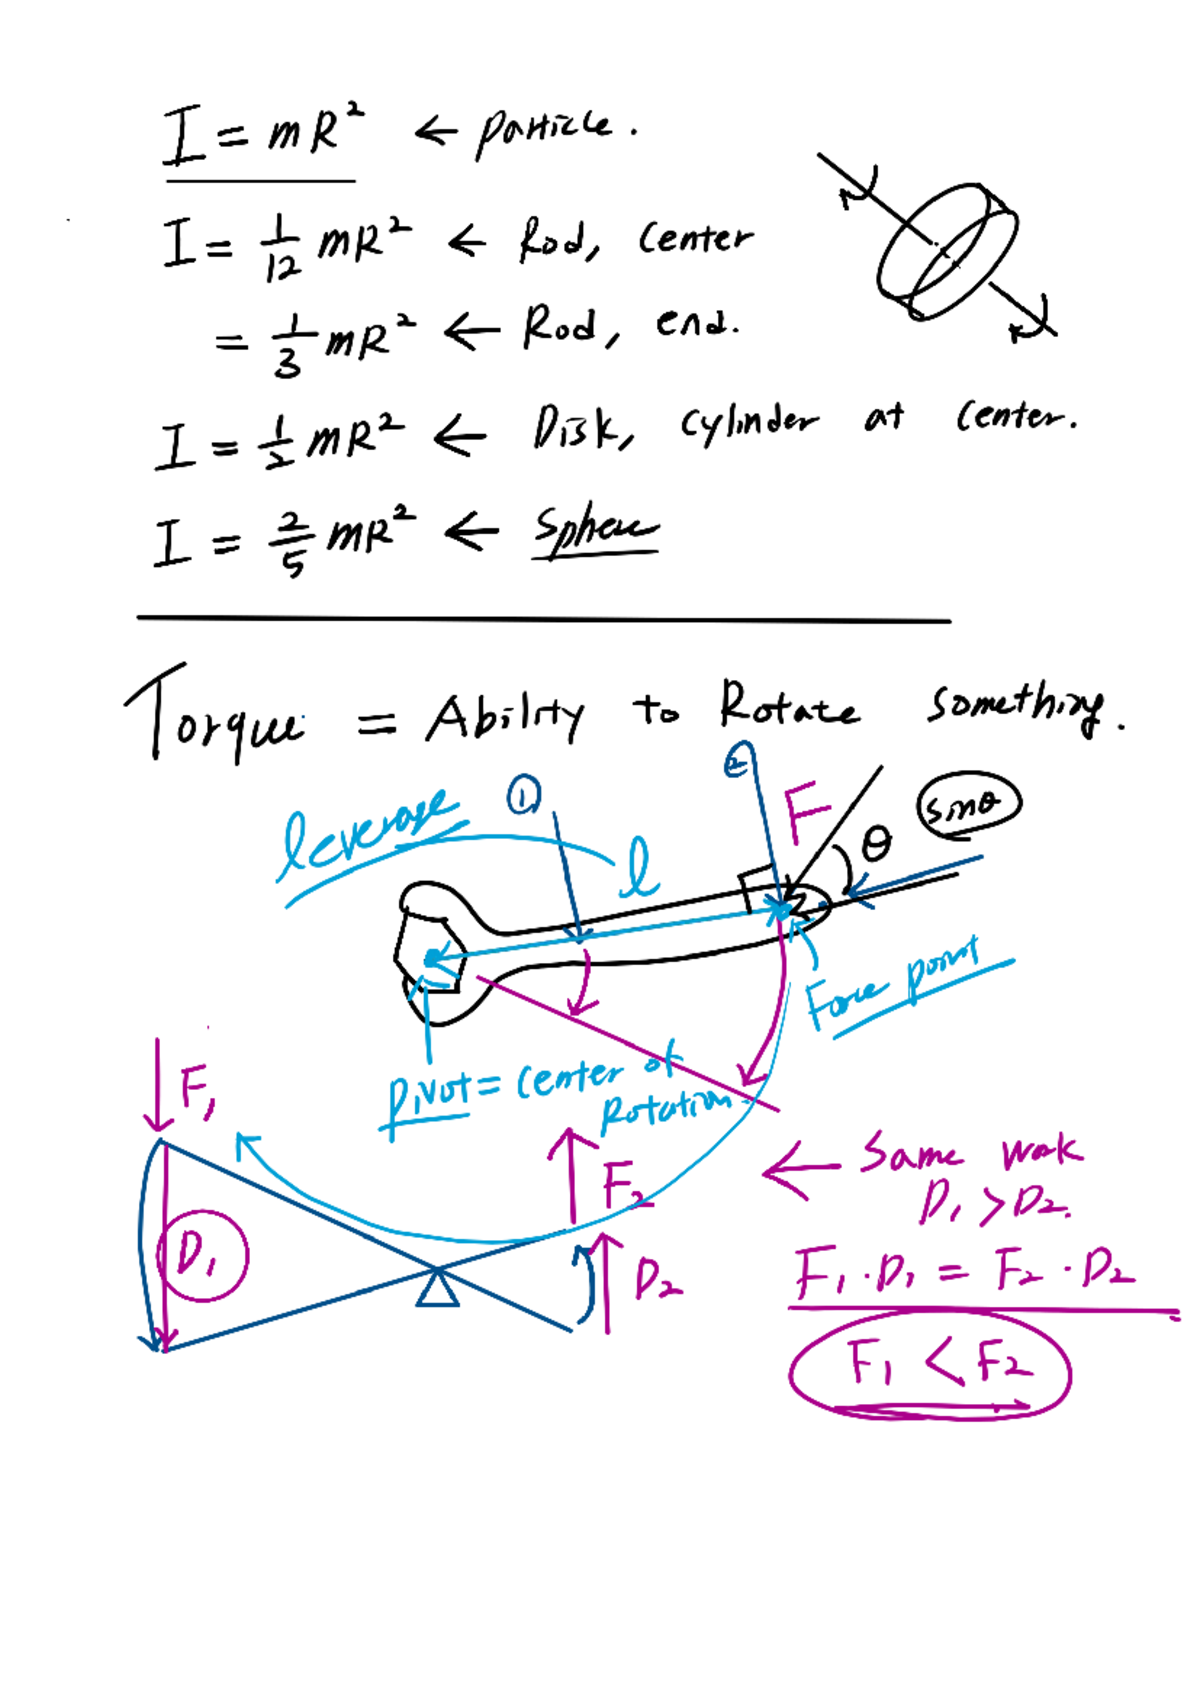 I = mR² ← particle.
I = 1/12 mR² ← Rod, center
= 1/3 mR² ← Rod, end.
I = 1/2 mR² ← Disk, cylinder at center.
I = 2/5 mR² ← sphere
Torque = Ability to Rotate something.
② F
leverage ① l θ sinθ
Force point
pivot = center of
Rotation.
F₁
F₂
D₁
D₂
← Same work
D₁ > D₂.
F₁ · D₁ = F₂ · D₂
F₁ < F₂